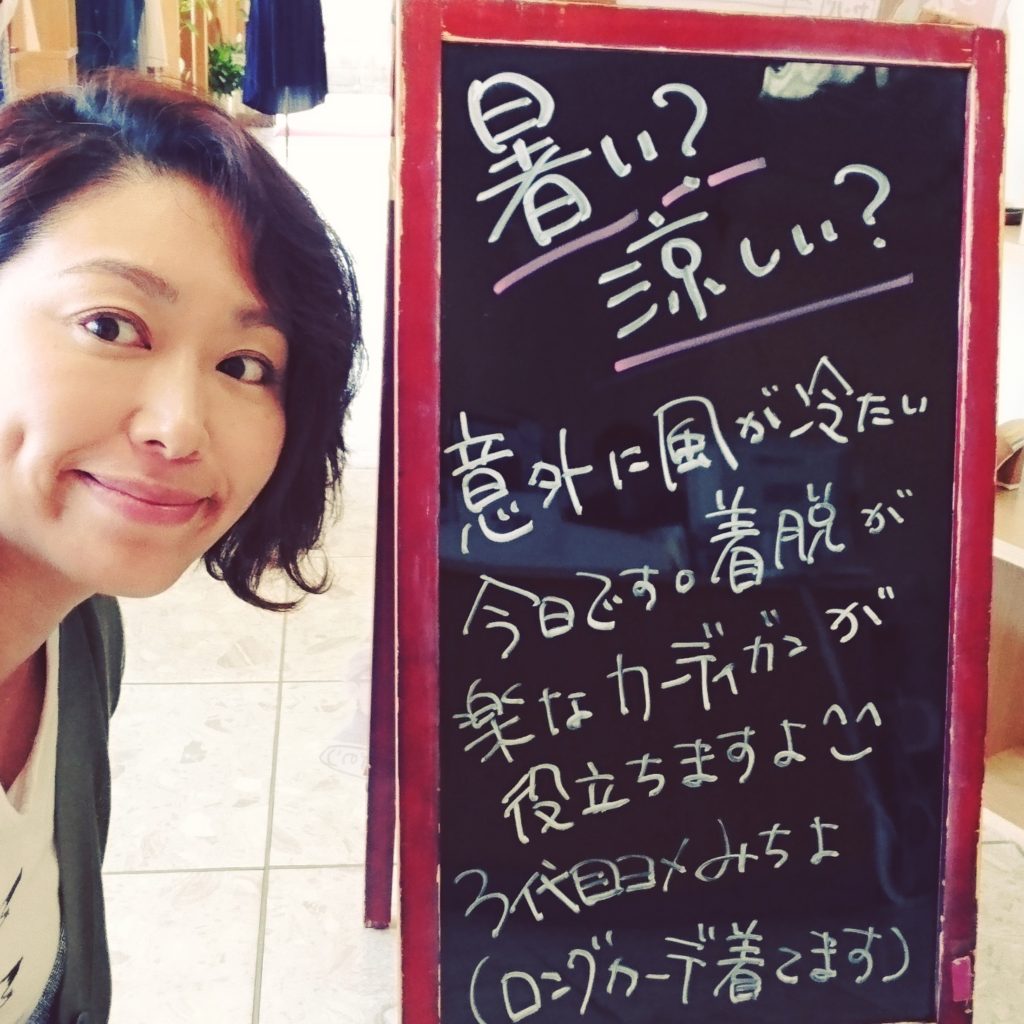 暑い?
涼しい?
意外に風が冷たい
今日です。着脱が
楽なカーディガンが
役立ちますよ^^
3代目ヨメみちよ
(ロングカーデ着てます)